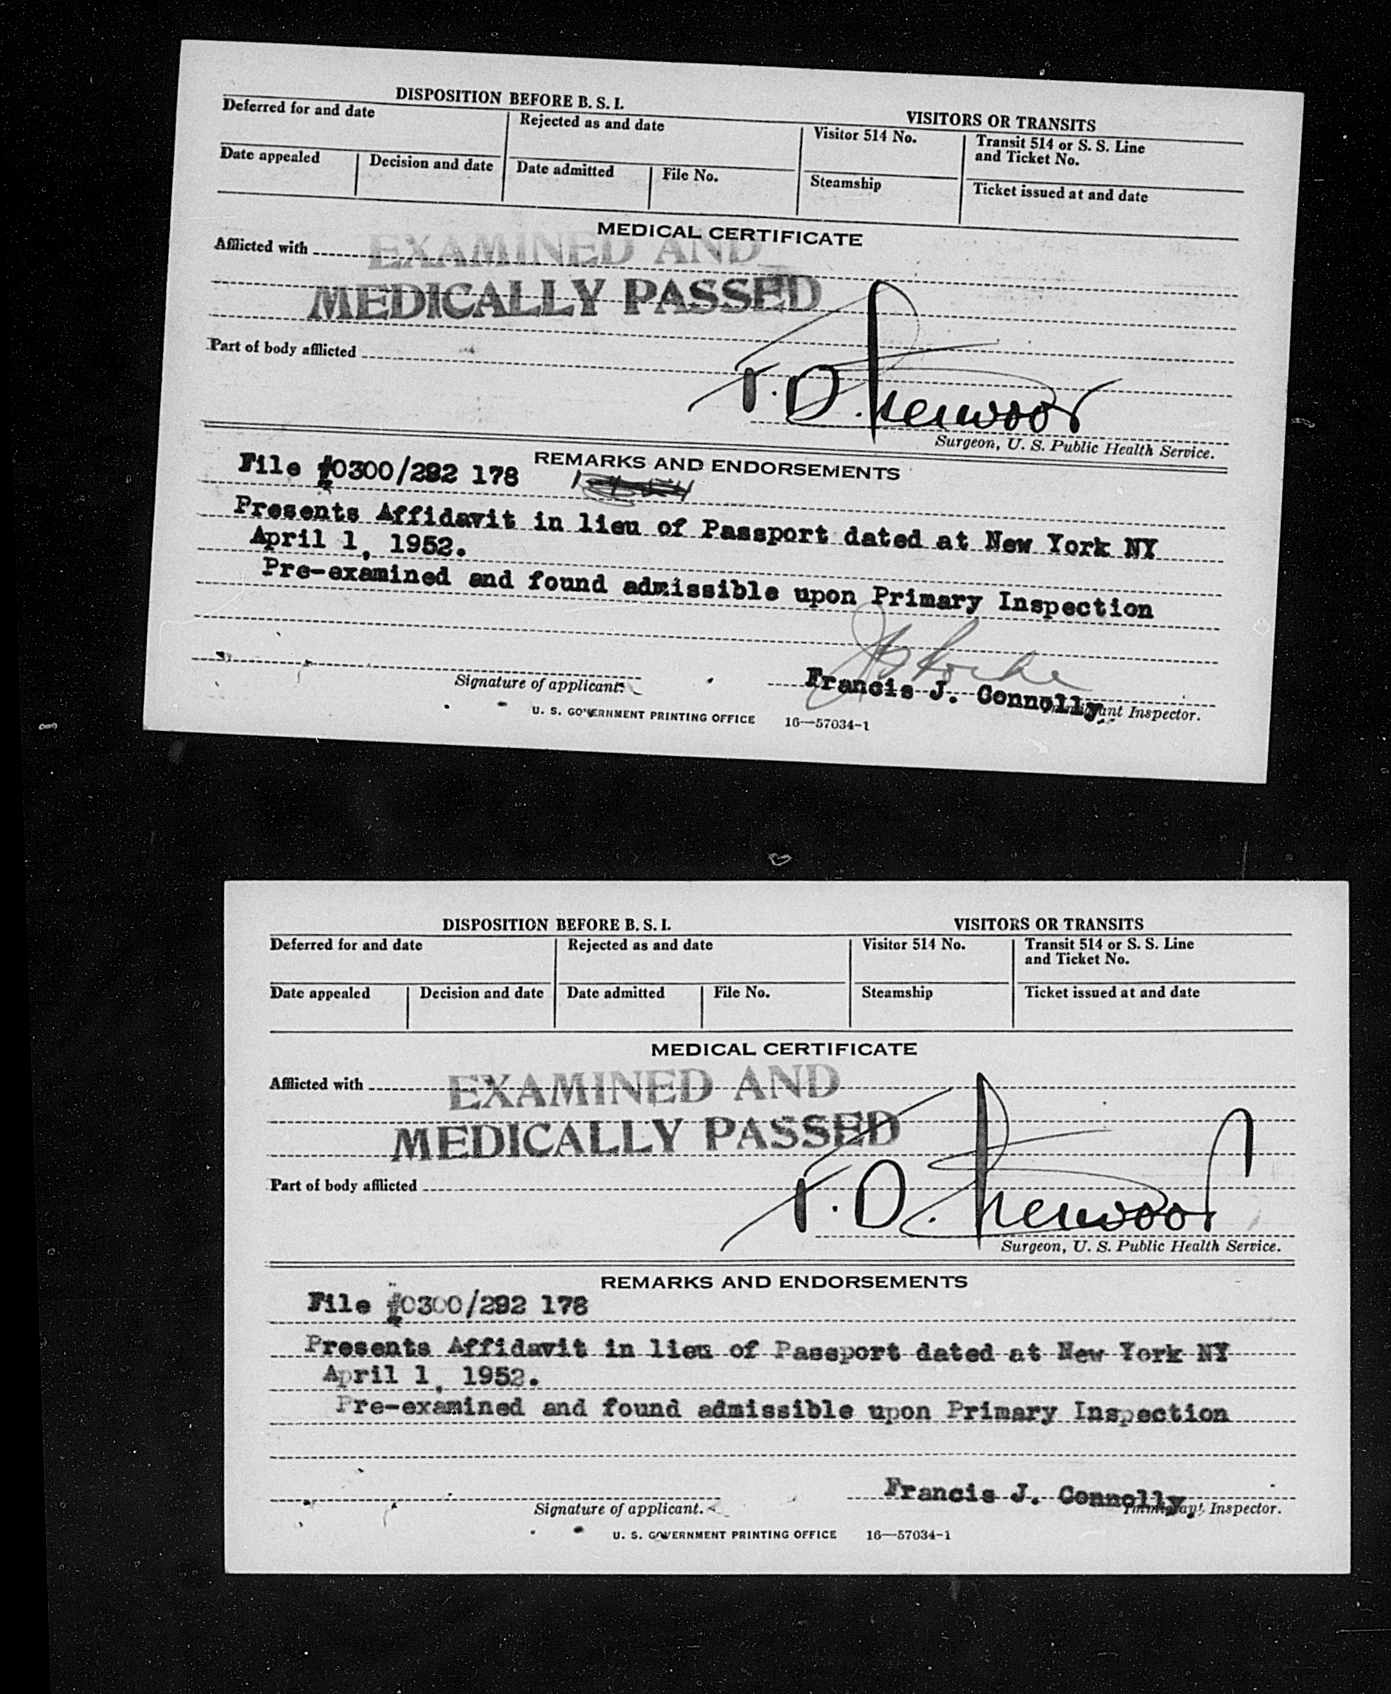 DISPOSITION BEFORE B. S. I.
VISITORS OR TRANSITS
Deferred for and date
Rejected as and date
Visitor 514 No.
Transit 514 or S. S. Line
and Ticket No.
Date appealed
Decision and date
Date admitted
File No.
Steamship
Ticket issued at and date
MEDICAL CERTIFICATE
Afflicted with
EXAMINED AND
MEDICALLY PASSED
Part of body afflicted
F. D. Sherwood
Surgeon, U. S. Public Health Service.
REMARKS AND ENDORSEMENTS
File #0300/292 178
Presents Affidavit in lieu of Passport dated at New York NY
April 1, 1952.
Pre-examined and found admissible upon Primary Inspection
Francis J. Connolly
Signature of applicant.
Immigrant Inspector.
U. S. GOVERNMENT PRINTING OFFICE 16—57034-1
DISPOSITION BEFORE B. S. I.
VISITORS OR TRANSITS
Deferred for and date
Rejected as and date
Visitor 514 No.
Transit 514 or S. S. Line
and Ticket No.
Date appealed
Decision and date
Date admitted
File No.
Steamship
Ticket issued at and date
MEDICAL CERTIFICATE
Afflicted with
EXAMINED AND
MEDICALLY PASSED
Part of body afflicted
F. D. Sherwood
Surgeon, U. S. Public Health Service.
REMARKS AND ENDORSEMENTS
File #0300/292 178
Presents Affidavit in lieu of Passport dated at New York NY
April 1, 1952.
Pre-examined and found admissible upon Primary Inspection
Francis J. Connolly
Signature of applicant.
Immigrant Inspector.
U. S. GOVERNMENT PRINTING OFFICE 16—57034-1